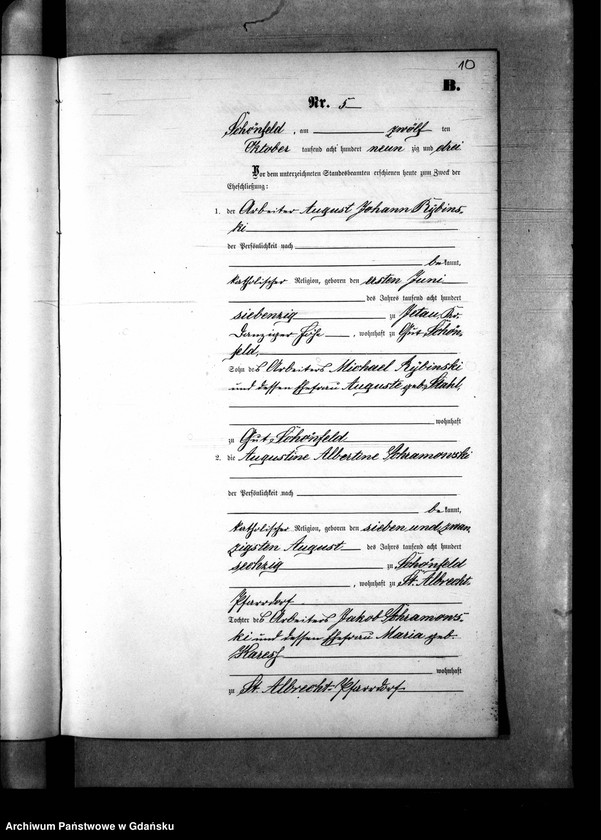 10
B.
Nr. 5
Schönfeld, am zwölf ten
Oktober tausend acht hundert neun zig und drei
Vor dem unterzeichneten Standesbeamten erschienen heute zum Zweck der
Eheschließung:
1. der Arbeiter August Johann Rybins-
ki
der Persönlichkeit nach
be kannt,
katholischer Religion, geboren den ersten Juni
des Jahres tausend acht hundert
siebenzig zu Jetau, Kr.
Danziger Höhe, wohnhaft zu Gut Schön-
feld,
Sohn des Arbeiters Michael Rybinski
und dessen Ehefrau Auguste geb. Stahl,
wohnhaft
zu Gut Schönfeld
2. die Augustine Albertine Schramowski
der Persönlichkeit nach
be kannt,
katholischer Religion, geboren den sieben und zwan-
zigsten August des Jahres tausend acht hundert
sechzig zu Schönfeld
, wohnhaft zu St. Albrecht-
Pfarrdorf
Tochter des Arbeiters Jakob Schramows-
ki und dessen Ehefrau Maria geb.
wohnhaft
zu St. Albrecht-Pfarrdorf
Archiwum Państwowe w Gdańsku